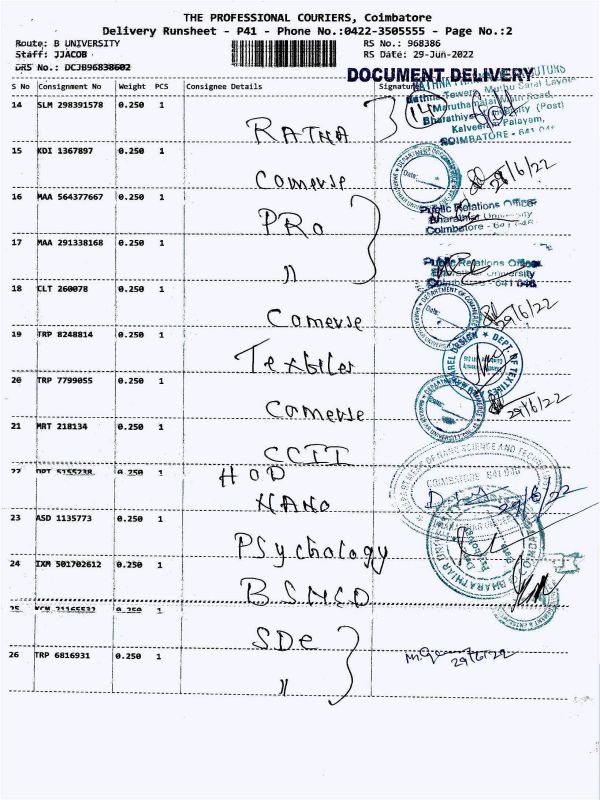 THE PROFESSIONAL COURIERS, Coimbatore
Delivery Runsheet - P41 - Phone No.:0422-3505555 - Page No.:2
Route: B UNIVERSITY
RS No.: 968386
Staff: JJACOB
RS Date: 29-Jun-2022
DRS No.: DCJB96838602
DOCUMENT DELIVERY
S No Consignment No Weight PCS Consignee Details Signature
14 SLM 298391578 0.250 1
RATNA
14
Maruthamalai Main Road,
Kalveeram Palayam,
COIMBATORE - 641 046
15 KDI 1367897 0.250 1
Comerse
29/6/22
16 MAA 564377667 0.250 1
PRO
Public Relations Officer
Bharathiar University
Coimbatore - 641 046
17 MAA 291338168 0.250 1
"
Public Relations Officer
Bharathiar University
Coimbatore - 641 046
18 CLT 260078 0.250 1
Comerse
29/6/22
19 TRP 8248814 0.250 1
Textiles
DEPT. OF TEXTILES
20 TRP 7799055 0.250 1
Comerse
29/6/22
21 MRT 218134 0.250 1
CCII
22 5155238 0.250 1
HOD
NANO
COIMBATORE 641 046
29/6/22
23 ASD 1135773 0.250 1
Psychology
24 IXM 501702612 0.250 1
25 0.250 1
SDe
26 TRP 6816931 0.250 1
"
29/6/22